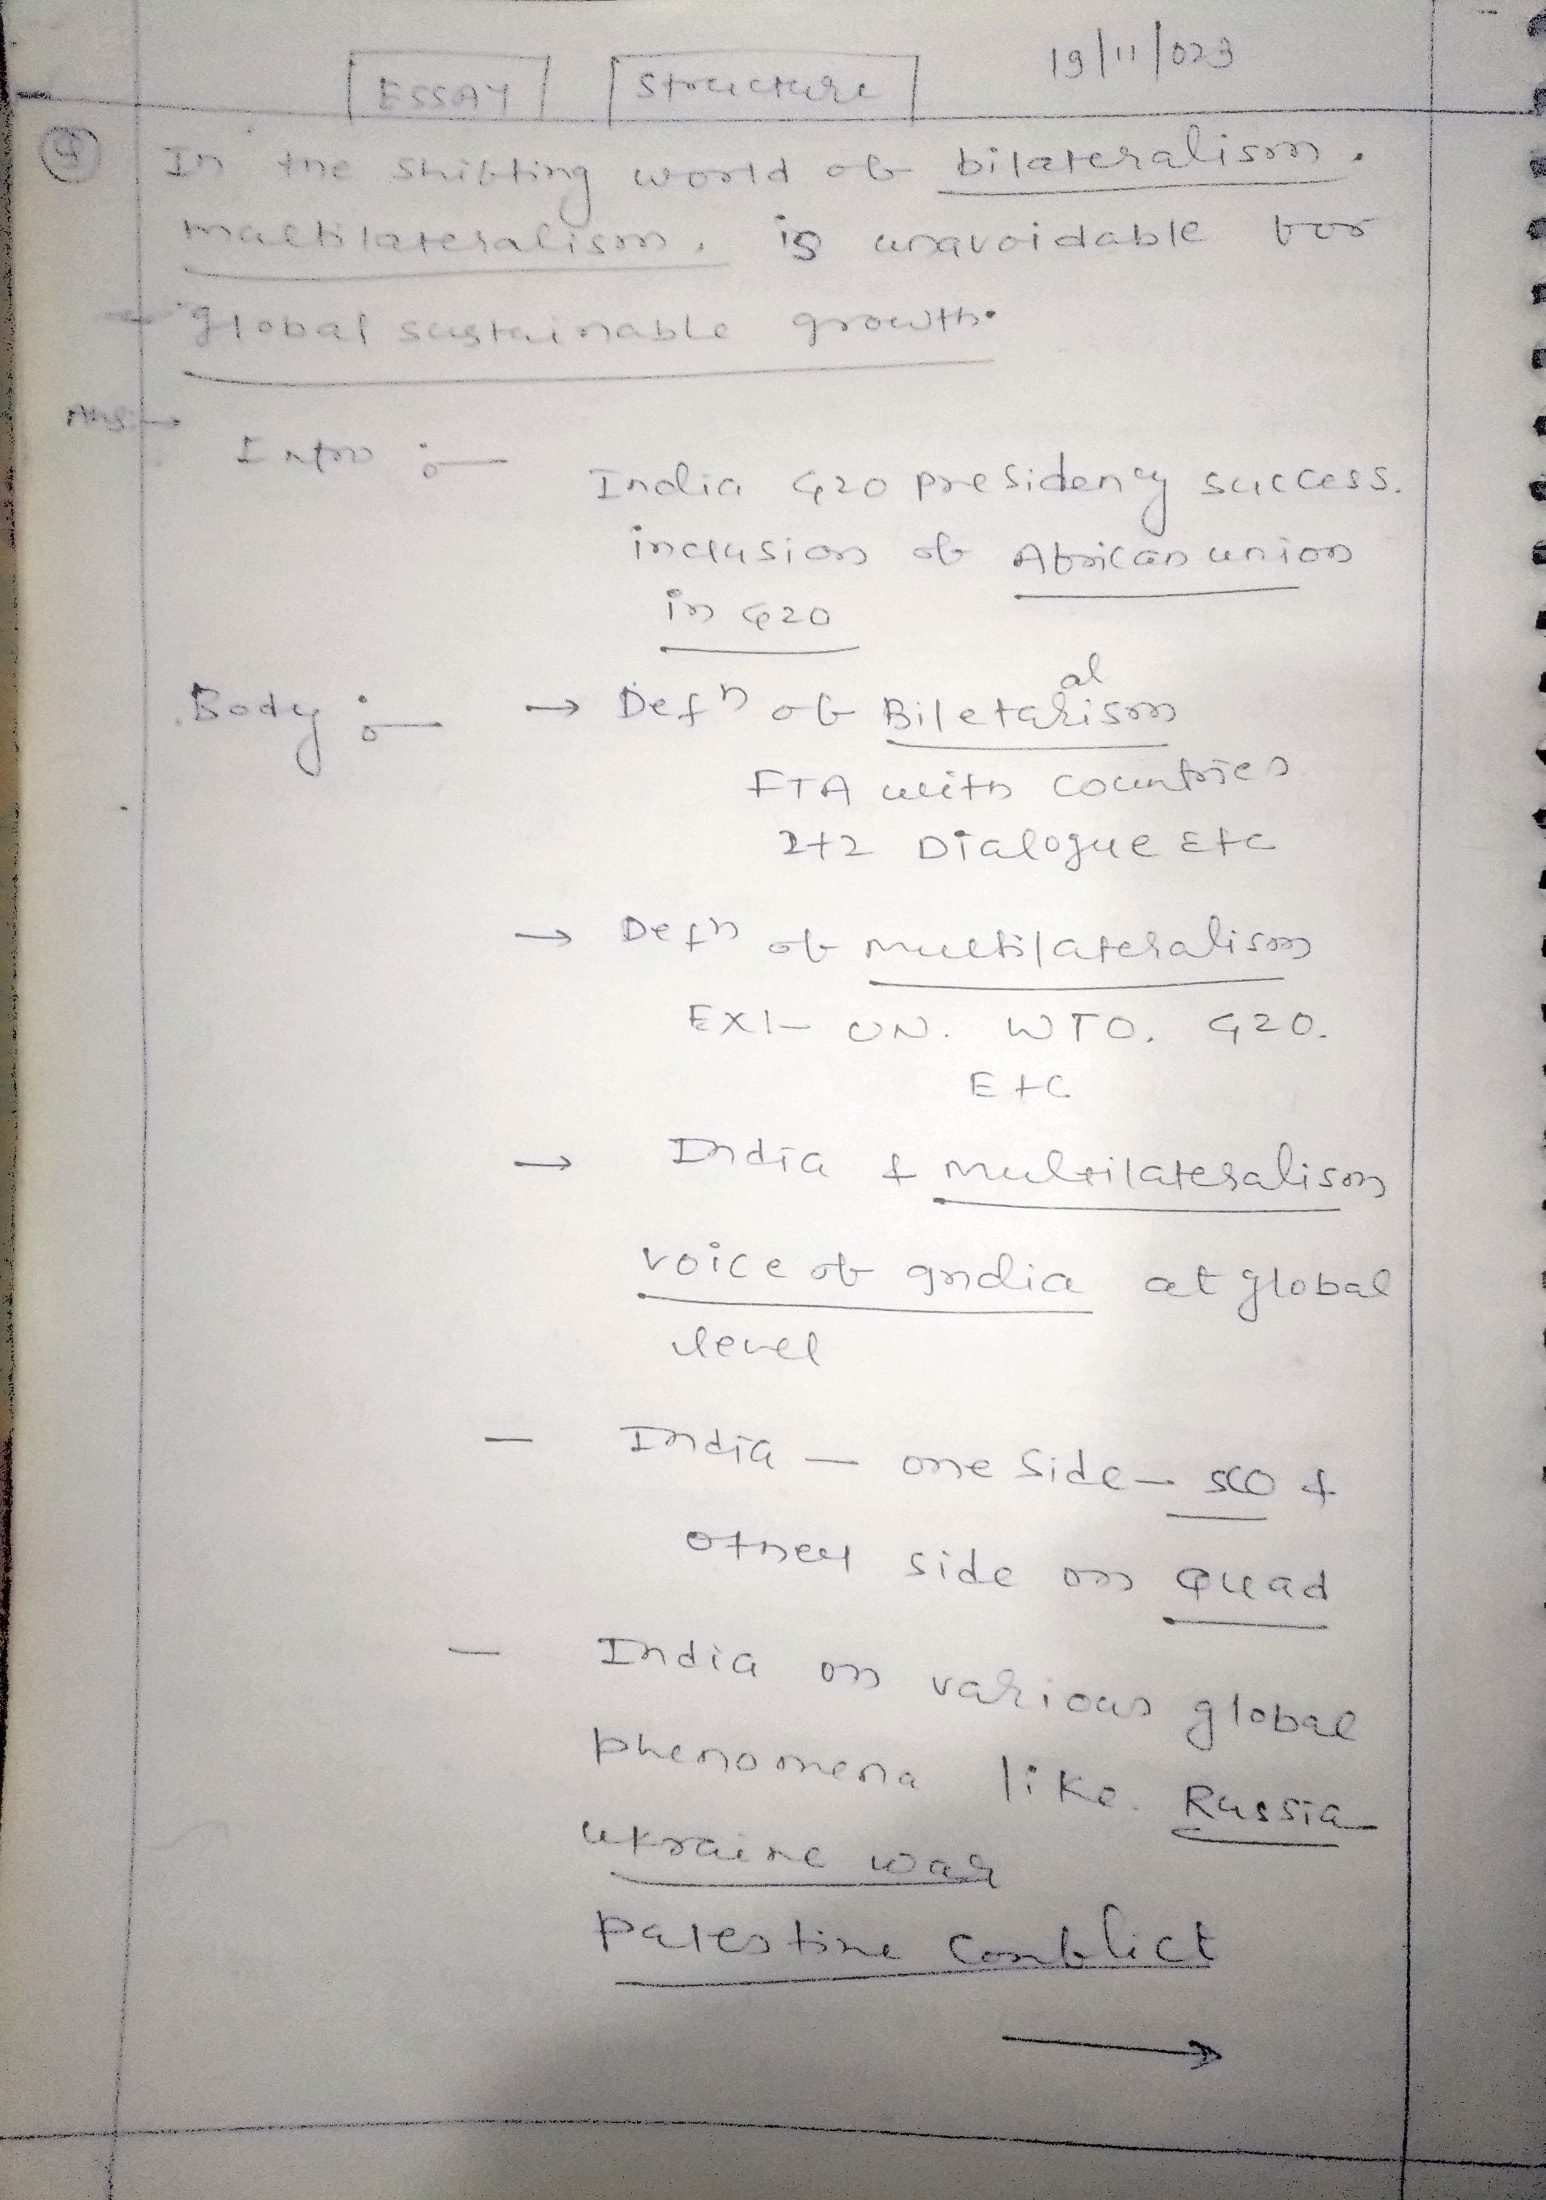 ESSAY Structure 19/11/023
4 In the shifting world of bilateralism,
multilateralism, is unavoidable for
global sustainable growth.
Ans:→
Intro :- India G20 presidency success.
inclusion of African union
in G20
Body :- → Defn of Biletarism
al
FTA with countries
2+2 Dialogue Etc
→ Defn of multilateralism
EX!- UN. WTO. G20.
Etc
→ India & multilateralism
voice of India at global
level
- India - one side - SCO &
other side on Quad
- India on various global
phenomena like. Russia
ukraine war
Palestine conflict
→